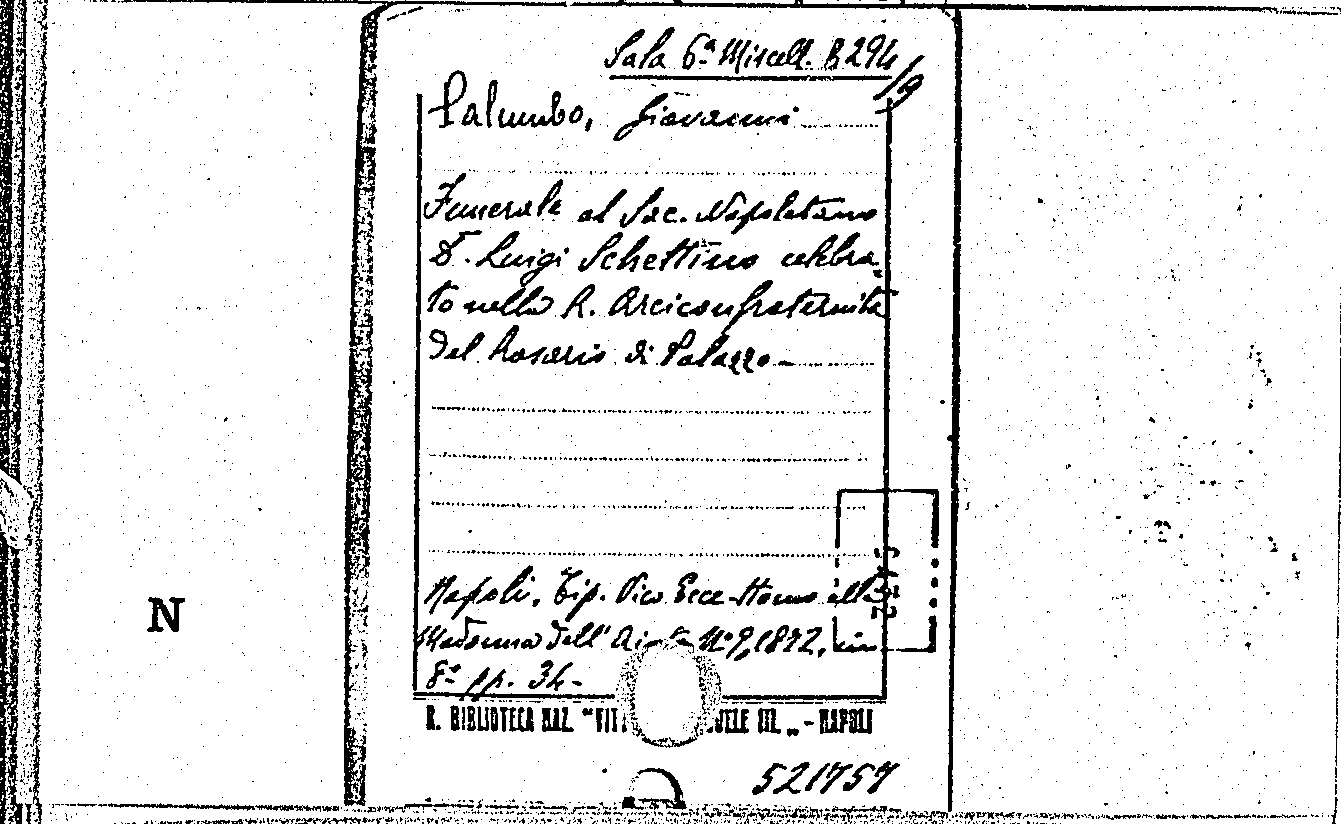 Sala 6ª Miscell. B 294/9
Palumbo, Giovanni
Funerale al Sac. Napoletano
D. Luigi Schettino celebra-
to nella R. Arciconfraternita
del Rosario di Palazzo-
Napoli, Tip. Vico Ecce-Homo alla
Madonna dell' Aiuto Nº 9, 1872, in
8º pp. 34-
R. BIBLIOTECA NAZ. "VITT UELE III. „ - NAPOLI
521757
N